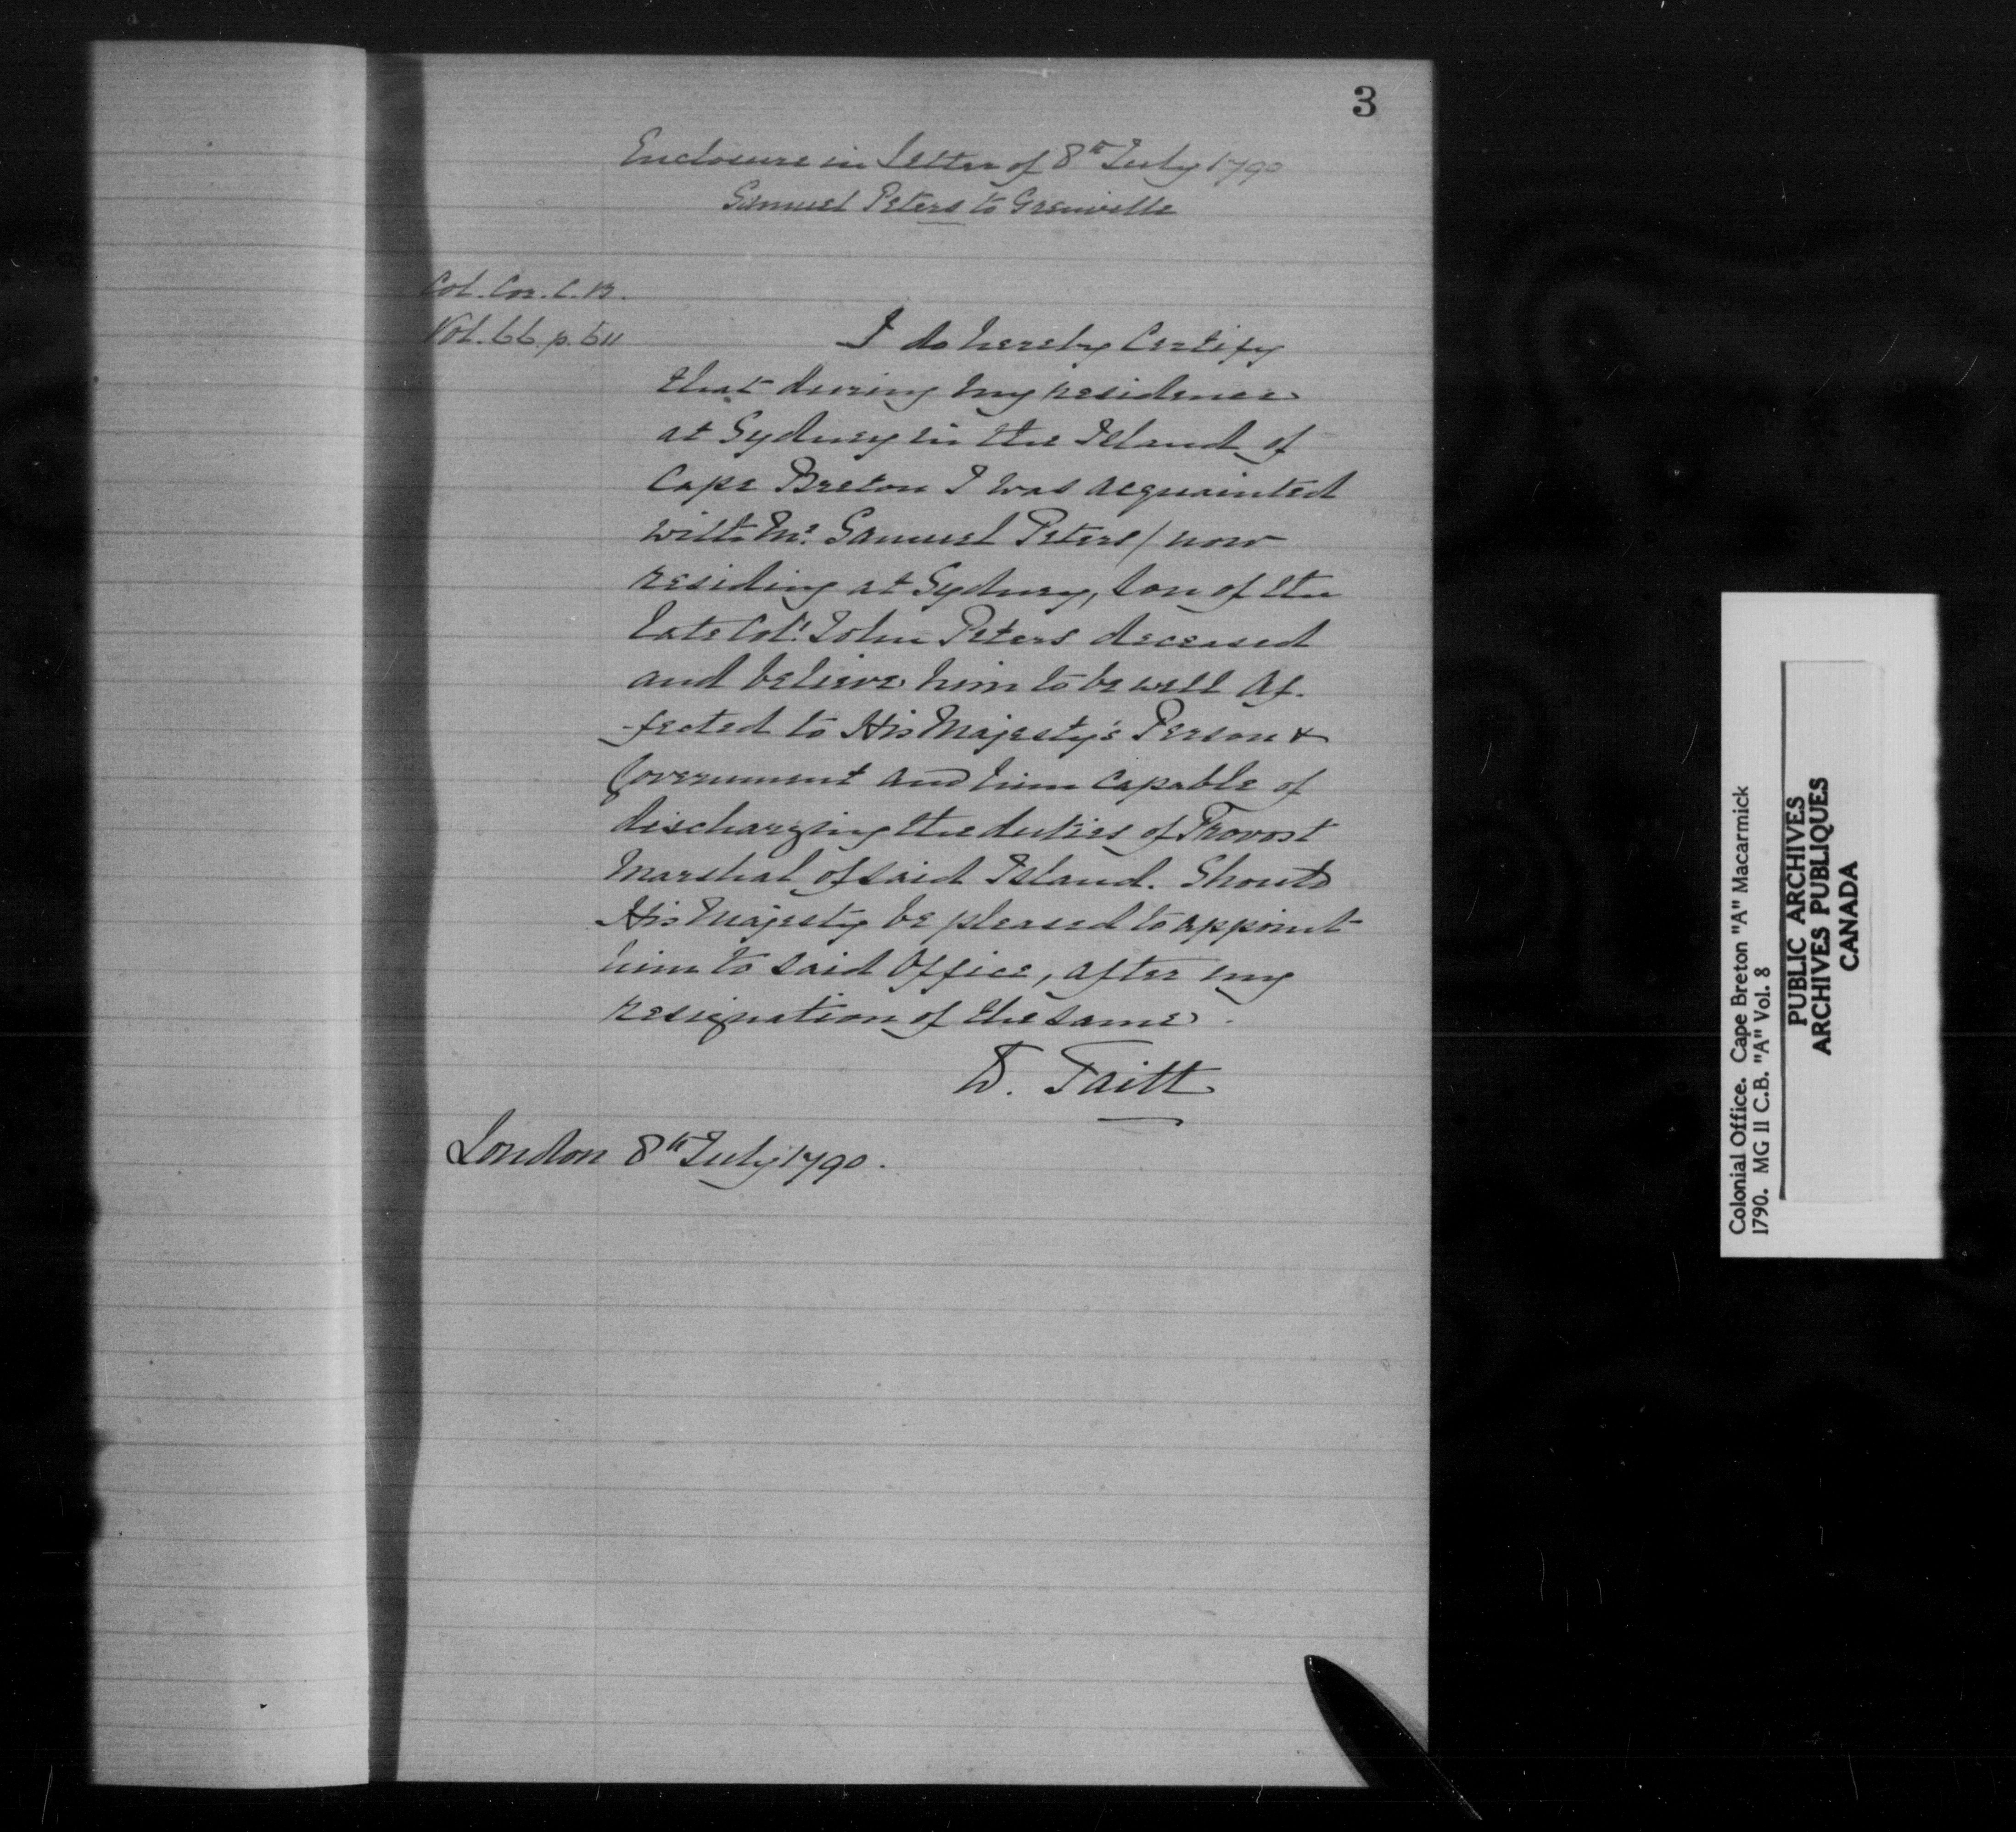 3
Enclosure in Letter of 8th July 1790
Samuel Peters to Grenville
Col. Cor. C. B.
Vol. 66 p. 511
I do hereby Certify
that during my residence
at Sydney in the Island of
Cape Breton I was acquainted
with Mr. Samuel Peters / now
residing at Sydney, son of the
late Col: John Peters deceased
and believe him to be well af-
-fected to His Majesty's Person &
Government and him capable of
discharging the duties of Provost
Marshal of said Island. Should
His Majesty be pleased to appoint
him to said Office, after my
resignation of the same.
D. Taitt
London 8th July 1790.
Colonial Office. Cape Breton "A" Macarmick
1790. MG 11 C.B. "A" Vol. 8
PUBLIC ARCHIVES
ARCHIVES PUBLIQUES
CANADA